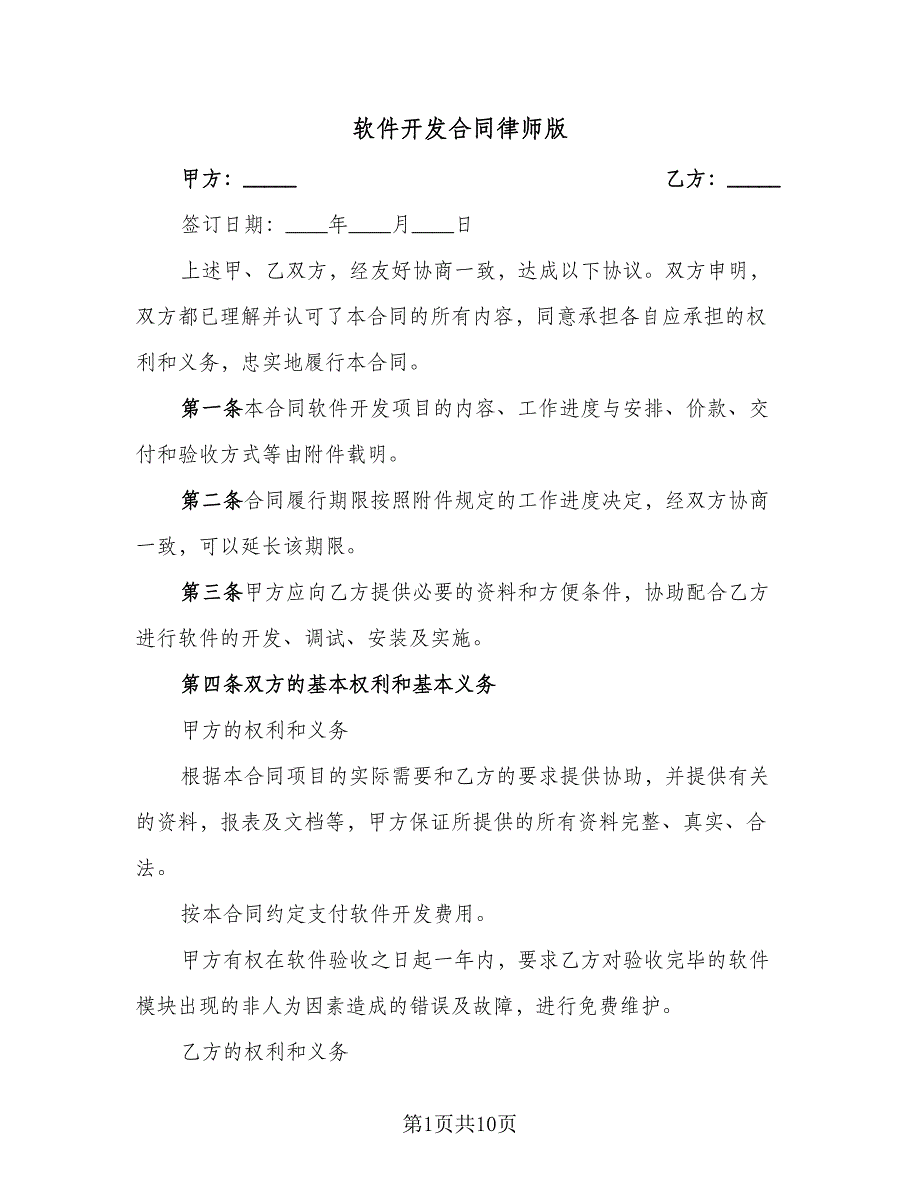 软件开发合同律师版
甲方：_____ 乙方：_____
签订日期：____年____月____日
上述甲、乙双方，经友好协商一致，达成以下协议。双方申明，
双方都已理解并认可了本合同的所有内容，同意承担各自应承担的权
利和义务，忠实地履行本合同。
第一条本合同软件开发项目的内容、工作进度与安排、价款、交
付和验收方式等由附件载明。
第二条合同履行期限按照附件规定的工作进度决定，经双方协商
一致，可以延长该期限。
第三条甲方应向乙方提供必要的资料和方便条件，协助配合乙方
进行软件的开发、调试、安装及实施。
第四条双方的基本权利和基本义务
甲方的权利和义务
根据本合同项目的实际需要和乙方的要求提供协助，并提供有关
的资料，报表及文档等，甲方保证所提供的所有资料完整、真实、合
法。
按本合同约定支付软件开发费用。
甲方有权在软件验收之日起一年内，要求乙方对验收完毕的软件
模块出现的非人为因素造成的错误及故障，进行免费维护。
乙方的权利和义务
第1页共10页